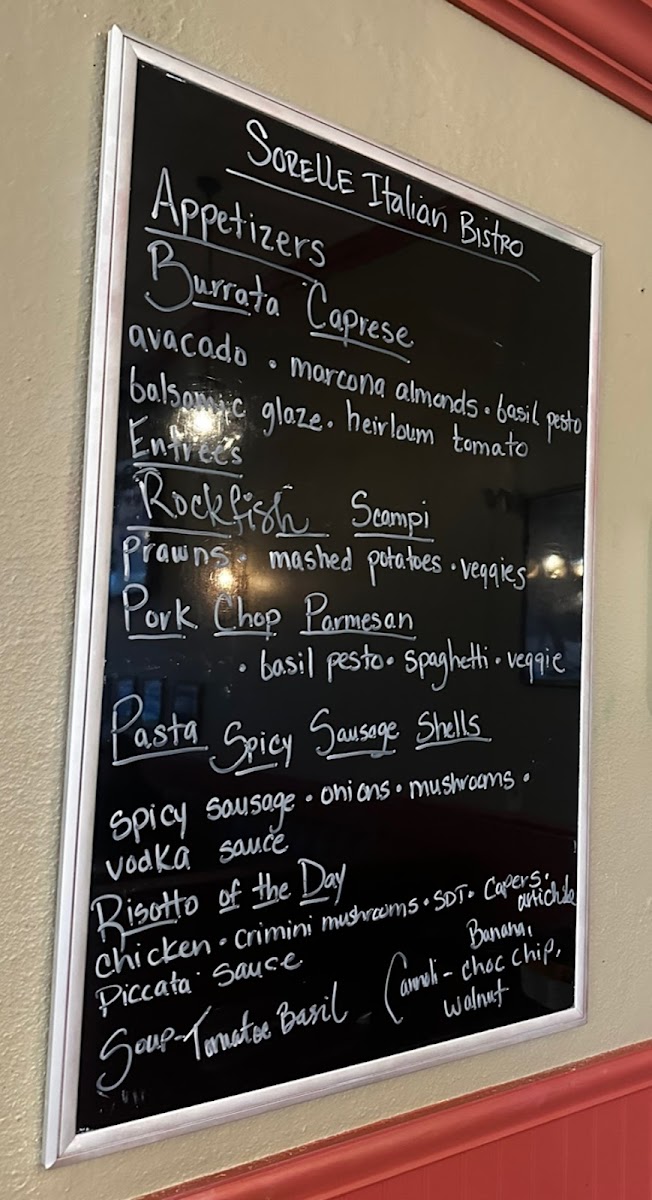 SORELLE Italian Bistro
Appetizers
Burrata Caprese
avacado • marcona almonds • basil pesto
balsamic glaze • heirloum tomato
Entrees
Rockfish Scampi
Prawns • mashed potatoes • veggies
Pork Chop Parmesan
• basil pesto • spaghetti • veggie
Pasta Spicy Sausage Shells
spicy sausage • onions • mushrooms •
vodka sauce
Risotto of the Day
chicken • crimini mushrooms • SDT • Capers •
artichoke
Piccata sauce
Soup - Tomatoe Basil
Cannoli - Banana,
choc chip,
walnut